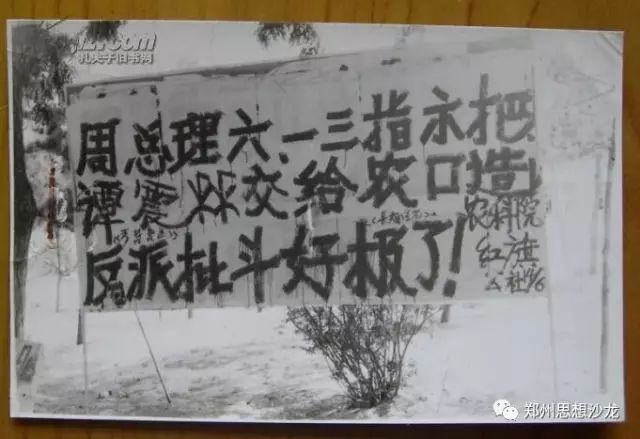 周总理六.一三指示把
谭震林交给农口造
反派批斗好极了!
农科院
红旗
公社
孔夫子旧书网
郑州思想沙龙